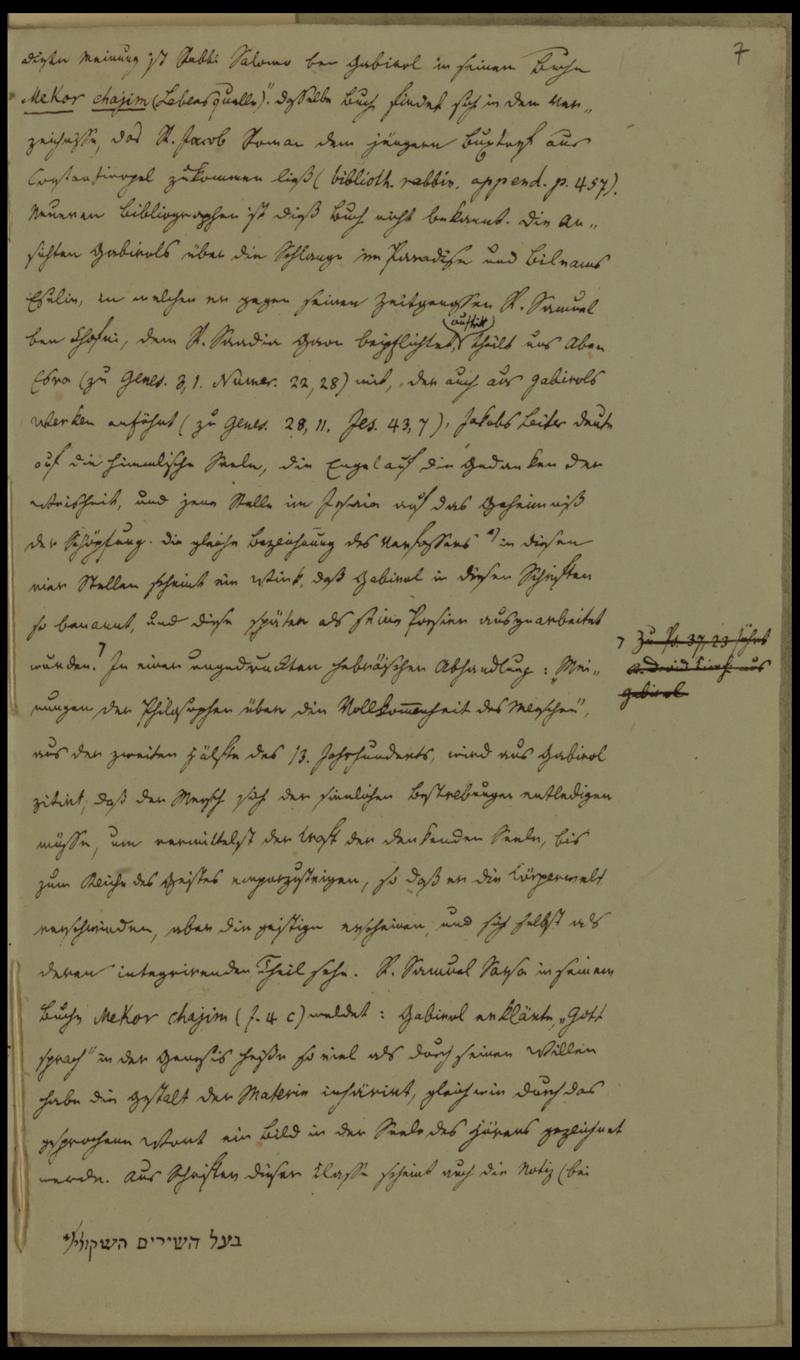 7
dieser Meinung ist Rabbi Salomo ben Gabirol in seinem Buche
Mekor chajim (Lebensquelle)". dasselbe Buch findet sich in dem Ver„
zeichnisse, das R. Jacob Roman dem jüngern Buxtorf aus
Constantinopel zukommen ließ (biblioth. rabbin. append. p. 457).
Neueren Bibliographen ist dieß Buch nicht bekannt. Die An„
sichten Gabirols über die Schlange im Paradiese und Bileams
Eselin, in welchen er gegen seinen Zeitgenossen R. Samuel
ben Chofni, dem R. Saadia Gaon beipflichtet, (auftritt) theilt uns Aben
Esra (zu Genes. 3, 1. Numer. 22, 28) mit, der auch aus Gabirols
Werken anführt (zu Genes. 28, 11. Jes. 43, 7), Jakobs Leiter deute
auf die himmlische Seele, die Engel auf die Gedanken der
Weisheit, und jene Stelle im Jesaia auf das Geheimniß
der Schöpfung. die gleiche Bezeichnung des Verfassers *) in diesen
vier Stellen scheint ein Wink, daß Gabirol in diesen Schriften
so benannt, und diese später als seine Poesien ausgearbeitet
wurden. ⁊ In einer ungedruckten hebräischen Abhandlung: „Mei„
nungen der Philosophen über die Vollkommenheit des Menschen",
aus der zweiten Hälfte des 13. Jahrhunderts, wird aus Gabirol
zitirt, daß der Mensch sich der sinnlichen Bestrebungen entledigen
müsse, um vermittelst der Kraft der denkenden Seele, bis
zum Reiche des Geistes emporzusteigen, so daß er die Körperwelt
verschwinden, aber die geistige erscheinen, und sich selbst als
deren integrirenden Theil sehe. R. Samuel Sarsa in seinem
Buche Mekor chajim (f. 4 c) meldet: Gabirol erklärte, „Gott
sprach" in der Genesis heiße so viel als durch seinen Willen
habe die Gestalt der Materie inhärirt, gleich wie durch das
gesprochene Wort ein Bild in der Seele des Hörers gezeichnet
werde. Aus Schriften dieser Klasse scheint auch die Notiz (bei
⁊ Zu Ps. 37, 23 führt
Gabirol
*) בעל השירים השקולים